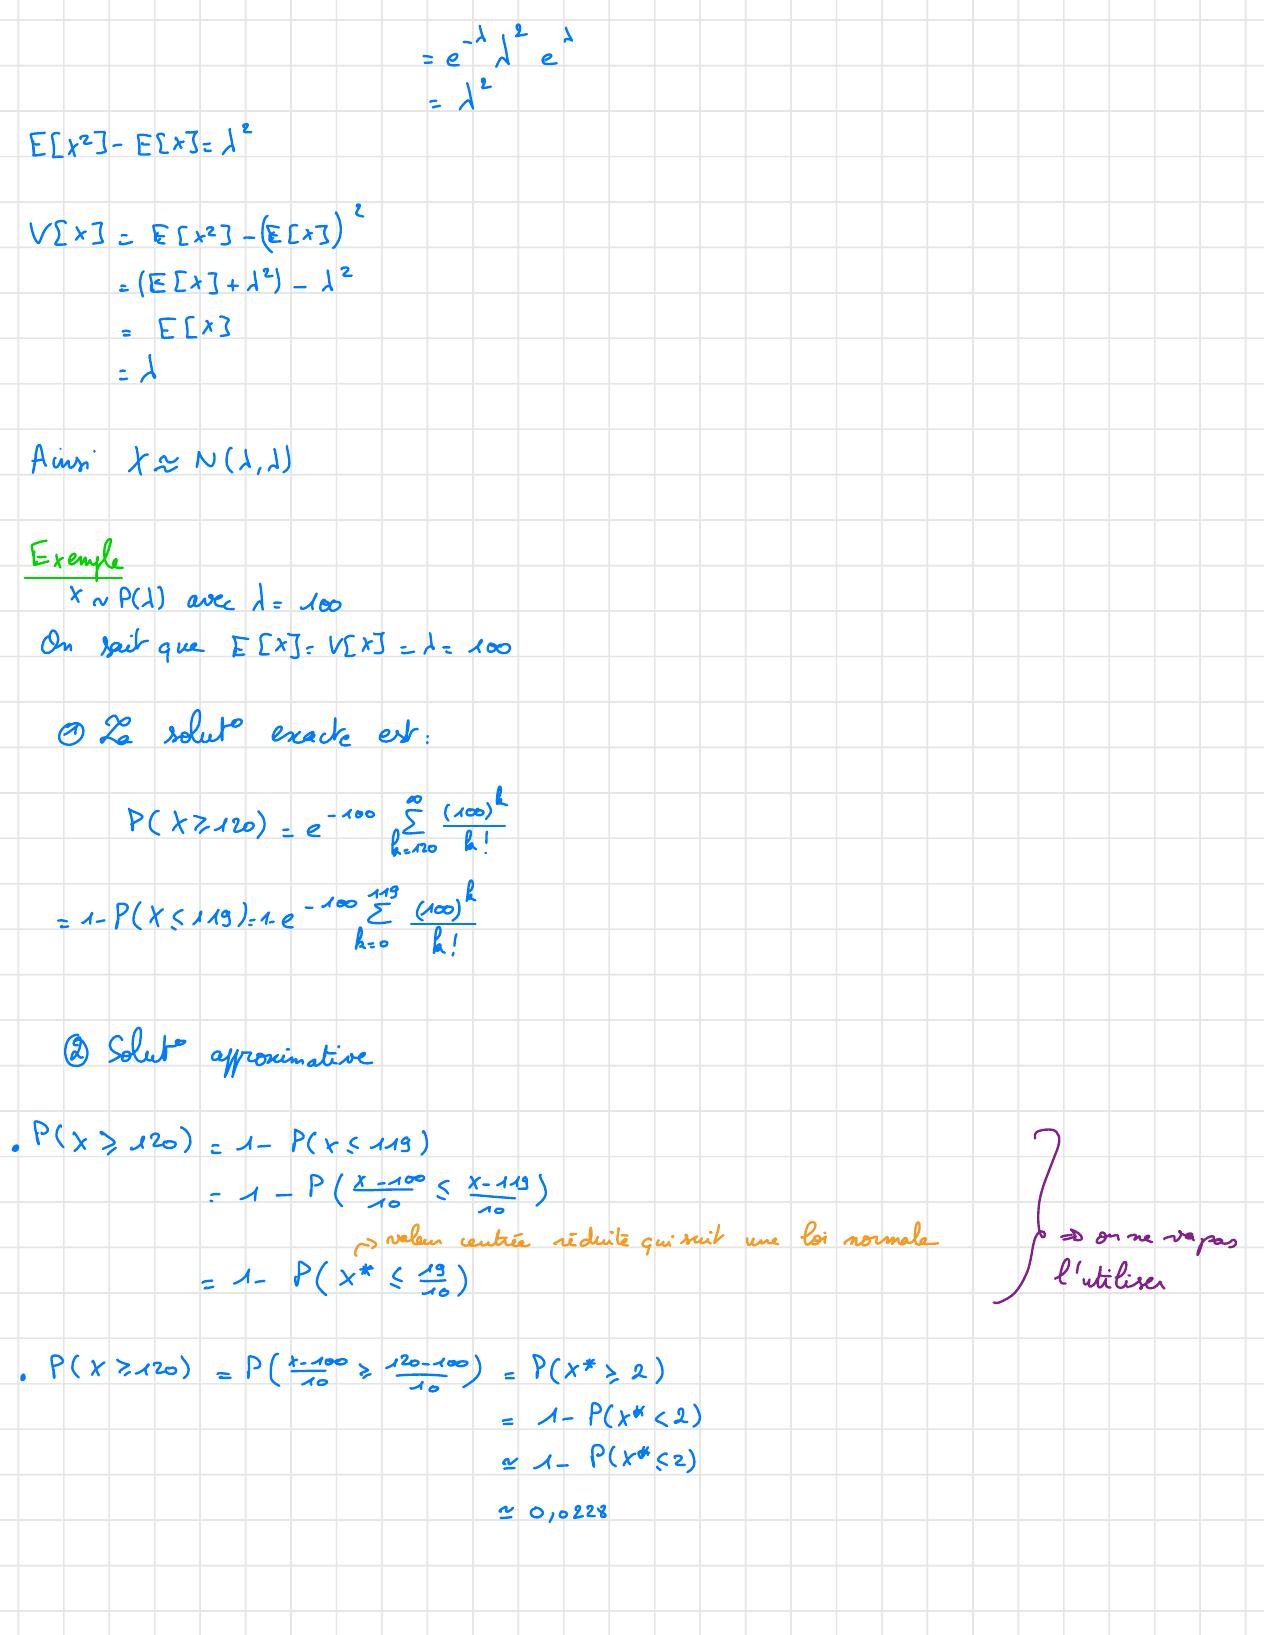 = e^{-λ} λ² e^{λ}
= λ²
E[X²] - E[X] = λ²
V[X] = E[X²] - (E[X])²
= (E[X] + λ²) - λ²
= E[X]
= λ
Ainsi X ≈ N(λ,λ)
Exemple
X ~ P(λ) avec λ = 100
On sait que E[X] = V[X] = λ = 100
① La solut° exacte est :
P(X ≥ 120) = e^{-100} \sum_{k=120}^{∞} \frac{(100)^k}{k!}
= 1 - P(X ≤ 119) = 1 - e^{-100} \sum_{k=0}^{119} \frac{(100)^k}{k!}
② Solut° approximative
. P(X ≥ 120) = 1 - P(X ≤ 119)
= 1 - P(\frac{X-100}{10} ≤ \frac{X-119}{10})
↱ valeur centrée réduite qui suit une loi normale
= 1 - P(X* ≤ \frac{19}{10})
⇒ on ne va pas
l'utiliser
. P(X ≥ 120) = P(\frac{X-100}{10} ≥ \frac{120-100}{10}) = P(X* ≥ 2)
= 1 - P(X* < 2)
≃ 1 - P(X* ≤ 2)
≃ 0,0228